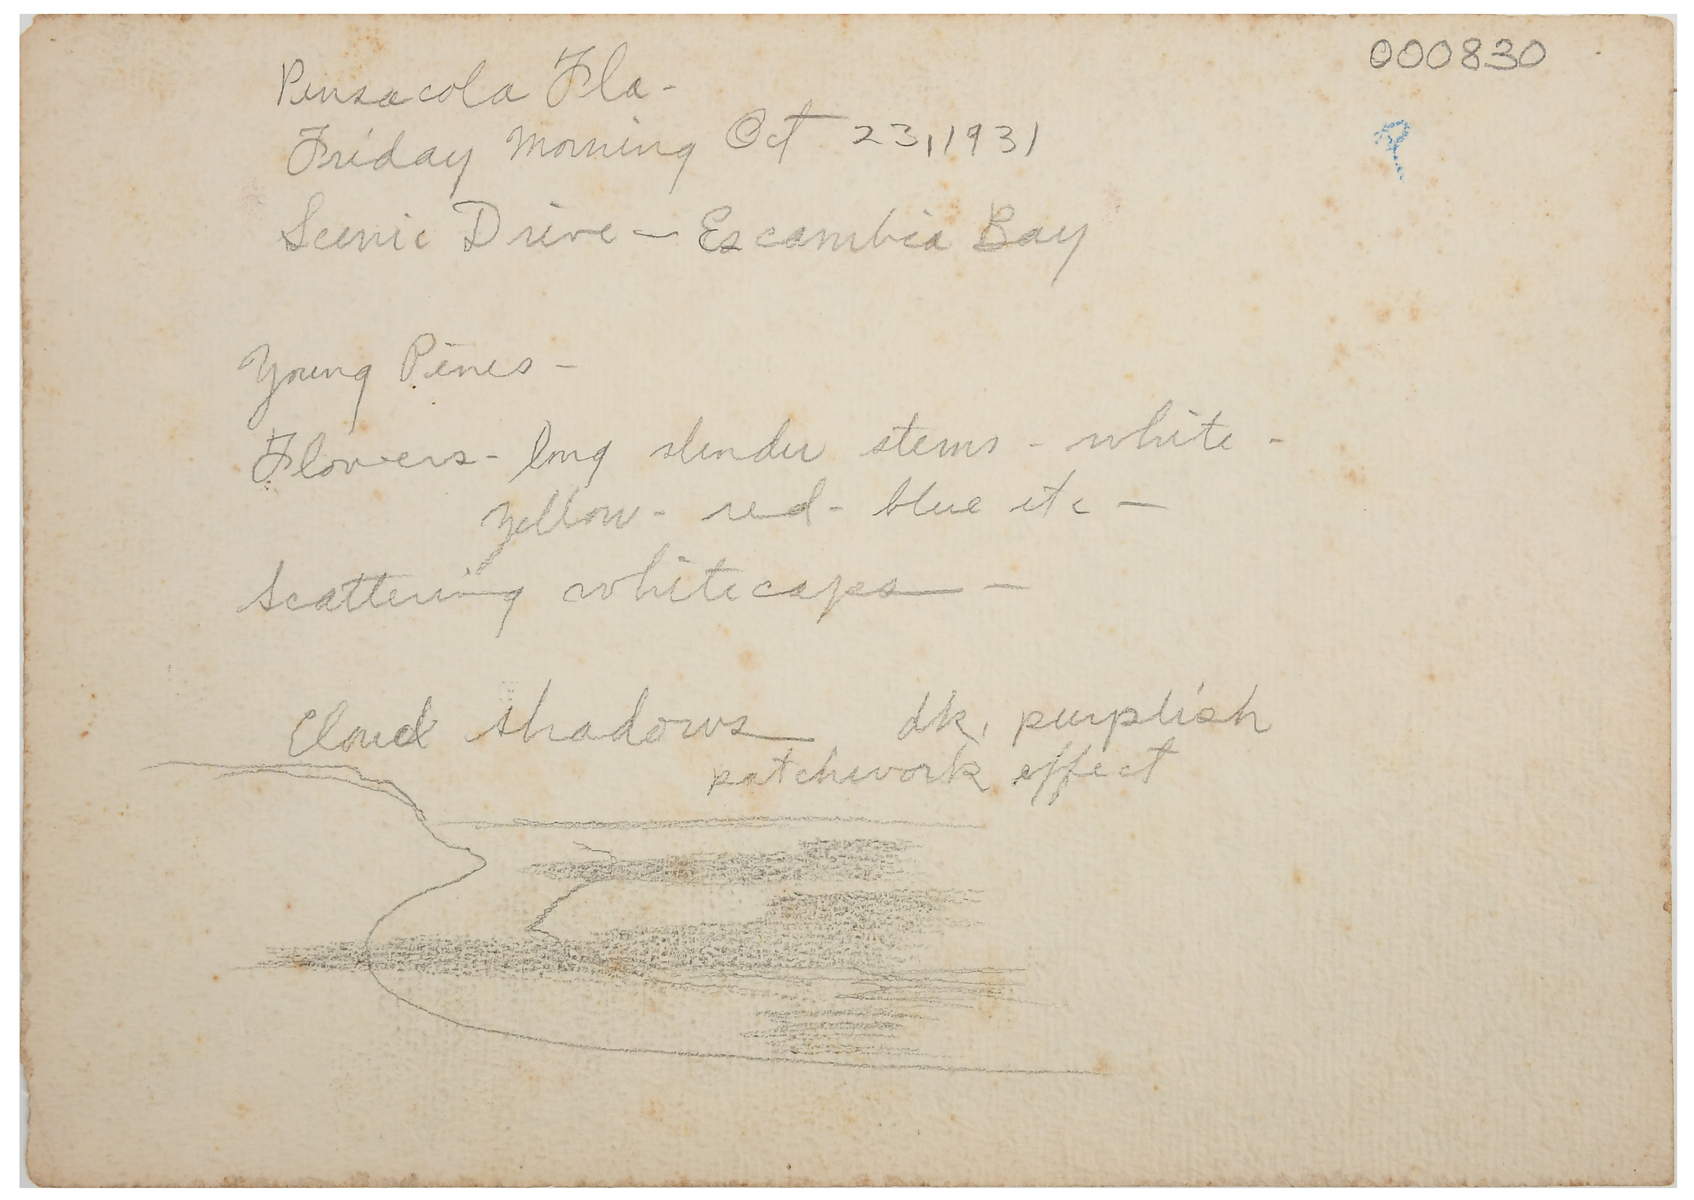 000830
Pensacola Fla-
Friday Morning Oct 23, 1931
Scenic Drive — Escambia Bay
Young Pines -
Flowers - long slender stems - white -
yellow - red - blue etc —
Scattering whitecaps — —
Cloud shadows — dk. purplish
patchwork effect